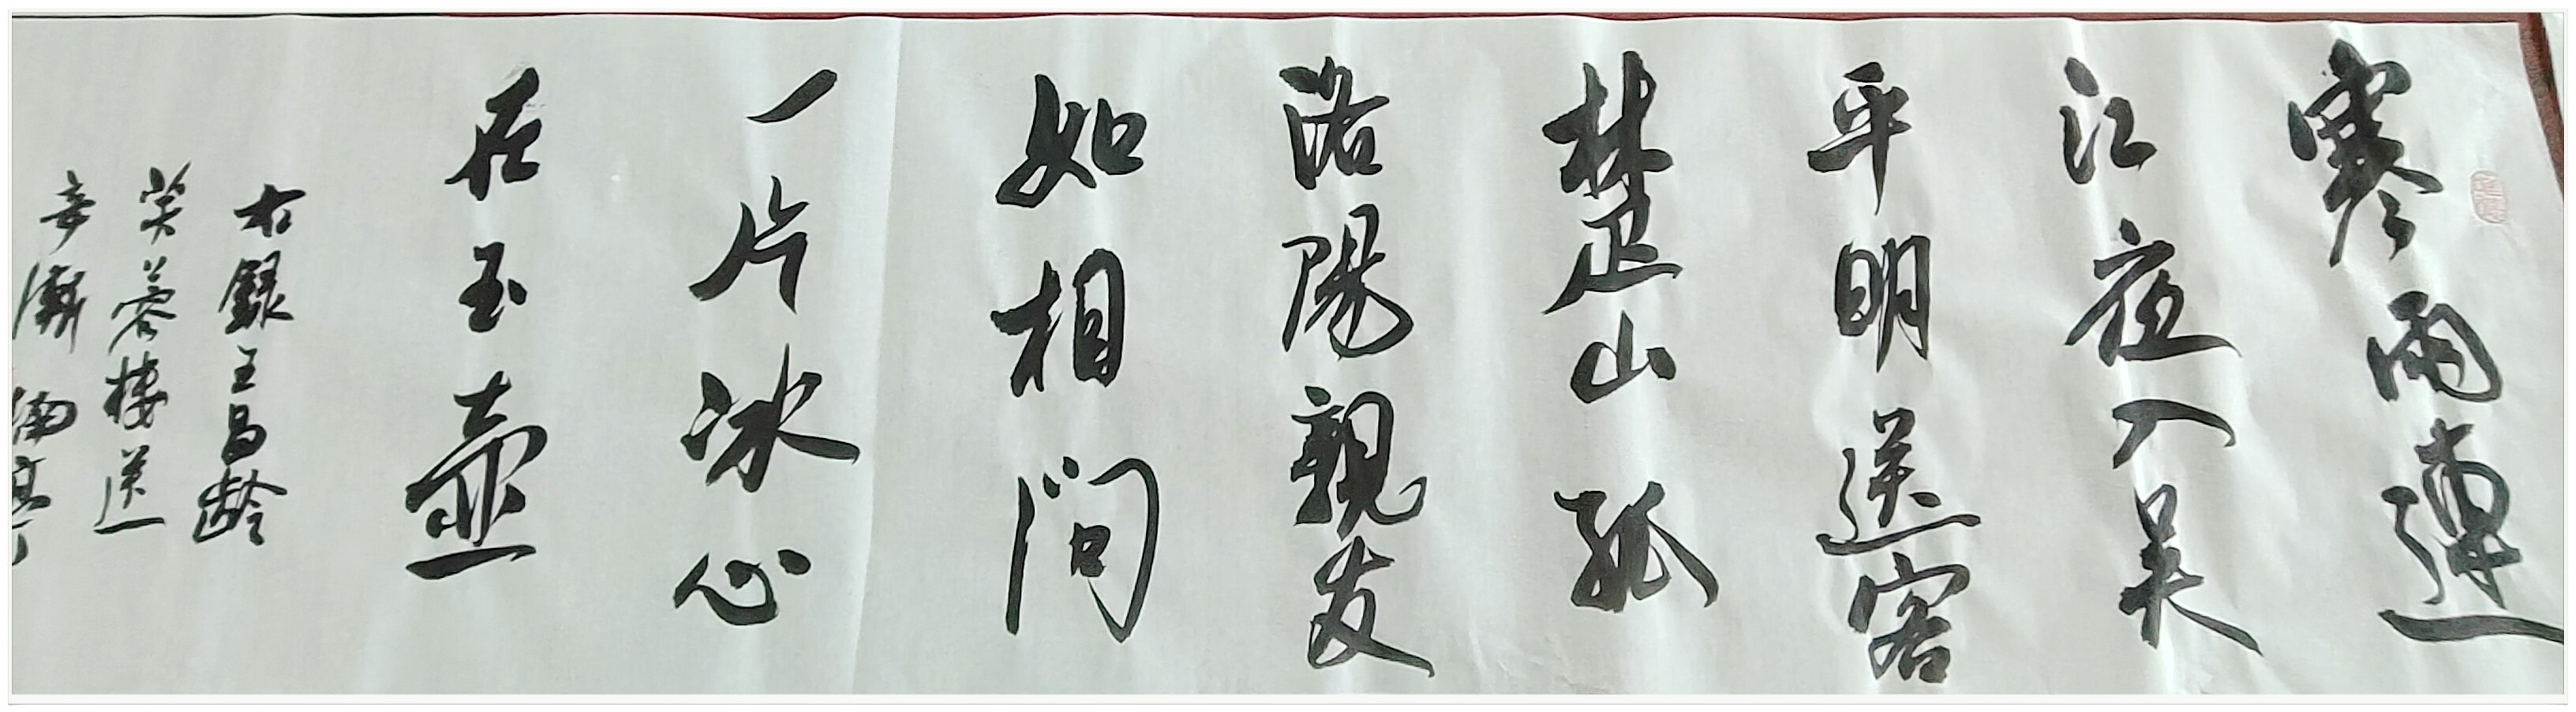 寒雨連
江夜入吴
平明送客
楚山孤
洛陽親友
如相問
一片冰心
在玉壶
右録王昌龄
芙蓉楼送
辛漸